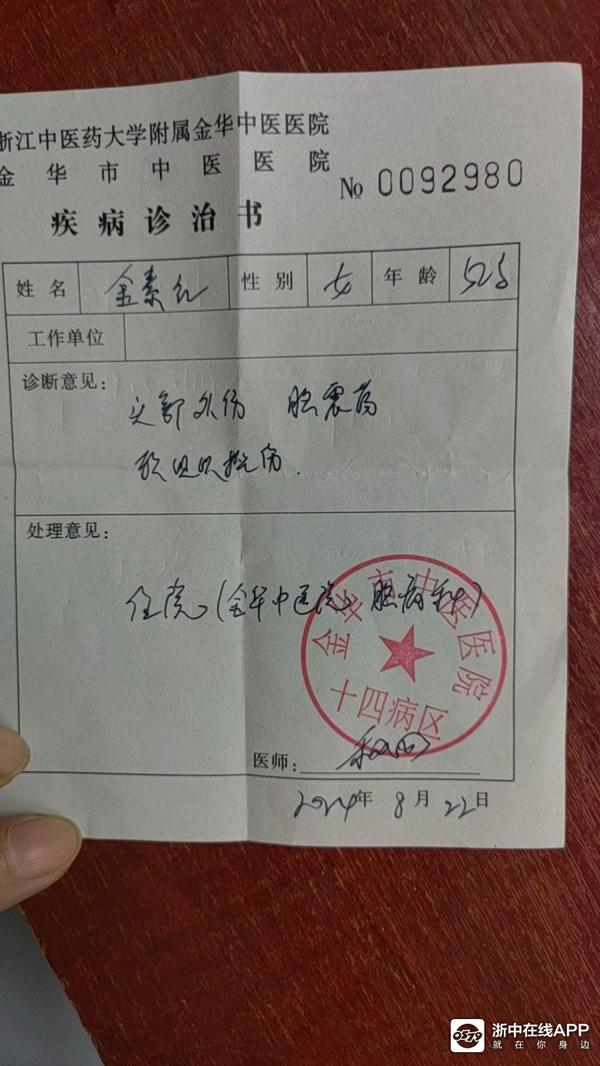 浙江中医药大学附属金华中医医院
金华市中医医院
№ 0092980
疾病诊治书
姓名 金素红 性别 女 年龄 52岁
工作单位
诊断意见：
头部外伤 脑震荡
软组织挫伤.
处理意见：
住院（金华中医院 脑病科）
金华市中医医院
十四病区
医师：
2024年 8月 22日
浙中在线APP
就在你身边